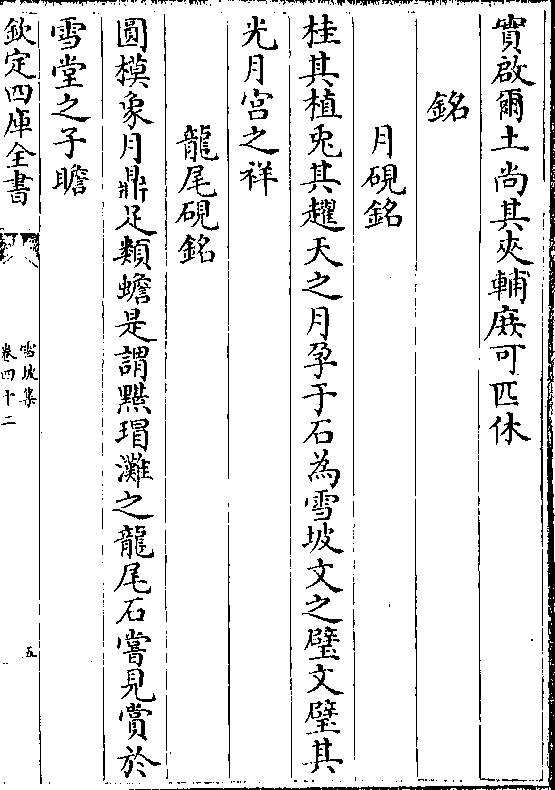 實啟爾土尚其夾輔庶可匹休
銘
月硯銘
桂其植兎其趯天之月孕于石為雪坡文之璧文璧其
光月宮之祥
龍尾硯銘
圓模象月鼎足類蟾是謂黑瑁灘之龍尾石嘗見賞於
雪堂之子瞻
欽定四庫全書
雪坡集
卷四十二
五